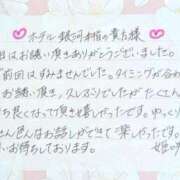 ホテル 銀河 本館の貴方様
回はお誘い頂きありがとうございました。
前回はすみませんでした。タイミングが合わ
お誘い頂き、久しぶりでしたがたくさん
ち良くなって頂き嬉しかったです。ゆっくり
色んなお話しができて楽しかったです。
お待ちしております。
姫